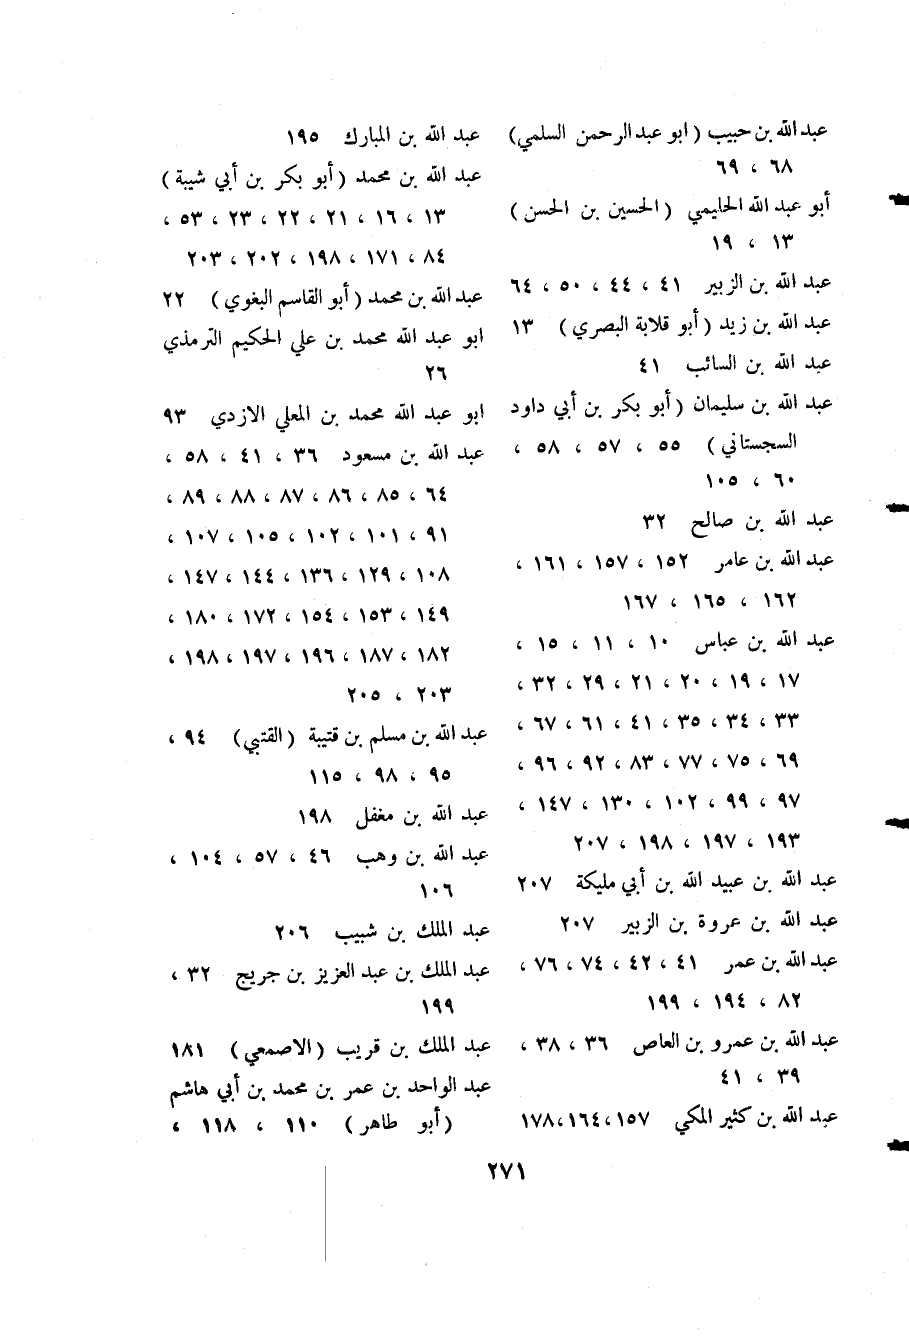 عبد الله بن حبيب ( ابو عبد الرحمن السلمي )
٦٨ ، ٦٩
أبو عبد الله الحليمي ( الحسين بن الحسن )
١٣ ، ١٩
عبد الله بن الزبير ٤١ ، ٤٤ ، ٥٠ ، ٦٤
عبد الله بن زيد ( أبو قلابة البصري ) ١٣
عبد الله بن السائب ٤١
عبد الله بن سليمان ( أبو بكر بن أبي داود
السجستاني ) ٥٥ ، ٥٧ ، ٥٨ ،
٦٠ ، ١٠٥
عبد الله بن صالح ٣٢
عبد الله بن عامر ١٥٢ ، ١٥٧ ، ١٦١ ،
١٦٢ ، ١٦٥ ، ١٦٧
عبد الله بن عباس ١٠ ، ١١ ، ١٥ ،
١٧ ، ١٩ ، ٢٠ ، ٢١ ، ٢٩ ، ٣٢ ،
٣٣ ، ٣٤ ، ٣٥ ، ٤١ ، ٦١ ، ٦٧ ،
٦٩ ، ٧٥ ، ٧٧ ، ٨٣ ، ٩٢ ، ٩٦ ،
٩٧ ، ٩٩ ، ١٠٢ ، ١٣٠ ، ١٤٧ ،
١٩٣ ، ١٩٧ ، ١٩٨ ، ٢٠٧
عبد الله بن عبيد الله بن أبي مليكة ٢٠٧
عبد الله بن عروة بن الزبير ٢٠٧
عبد الله بن عمر ٤١ ، ٤٢ ، ٧٤ ، ٧٦ ،
٨٢ ، ١٩٤ ، ١٩٩
عبد الله بن عمرو بن العاص ٣٦ ، ٣٨ ،
٣٩ ، ٤١
عبد الله بن كثير المكي ١٥٧ ، ١٦٤ ، ١٧٨
عبد الله بن المبارك ١٩٥
عبد الله بن محمد ( أبو بكر بن أبي شيبة )
١٣ ، ١٦ ، ٢١ ، ٢٢ ، ٢٣ ، ٥٣ ،
٨٤ ، ١٧١ ، ١٩٨ ، ٢٠٢ ، ٢٠٣
عبد الله بن محمد ( أبو القاسم البغوي ) ٢٢
ابو عبد الله محمد بن علي الحكيم الترمذي
٢٦
ابو عبد الله محمد بن المعلي الازدي ٩٣
عبد الله بن مسعود ٣٦ ، ٤١ ، ٥٨ ،
٦٤ ، ٨٥ ، ٨٦ ، ٨٧ ، ٨٨ ، ٨٩ ،
٩١ ، ١٠١ ، ١٠٢ ، ١٠٥ ، ١٠٧ ،
١٠٨ ، ١٢٩ ، ١٣٦ ، ١٤٤ ، ١٤٧ ،
١٤٩ ، ١٥٣ ، ١٥٤ ، ١٧٢ ، ١٨٠ ،
١٨٢ ، ١٨٧ ، ١٩٦ ، ١٩٧ ، ١٩٨ ،
٢٠٣ ، ٢٠٥
عبد الله بن مسلم بن قتيبة ( القتبي ) ٩٤ ،
٩٥ ، ٩٨ ، ١١٥
عبد الله بن مغفل ١٩٨
عبد الله بن وهب ٤٦ ، ٥٧ ، ١٠٤ ،
١٠٦
عبد الملك بن شبيب ٢٠٦
عبد الملك بن عبد العزيز بن جريج ٣٢ ،
١٩٩
عبد الملك بن قريب ( الاصمعي ) ١٨١
عبد الواحد بن عمر بن محمد بن أبي هاشم
( أبو طاهر ) ١١٠ ، ١١٨ ،
٢٧١